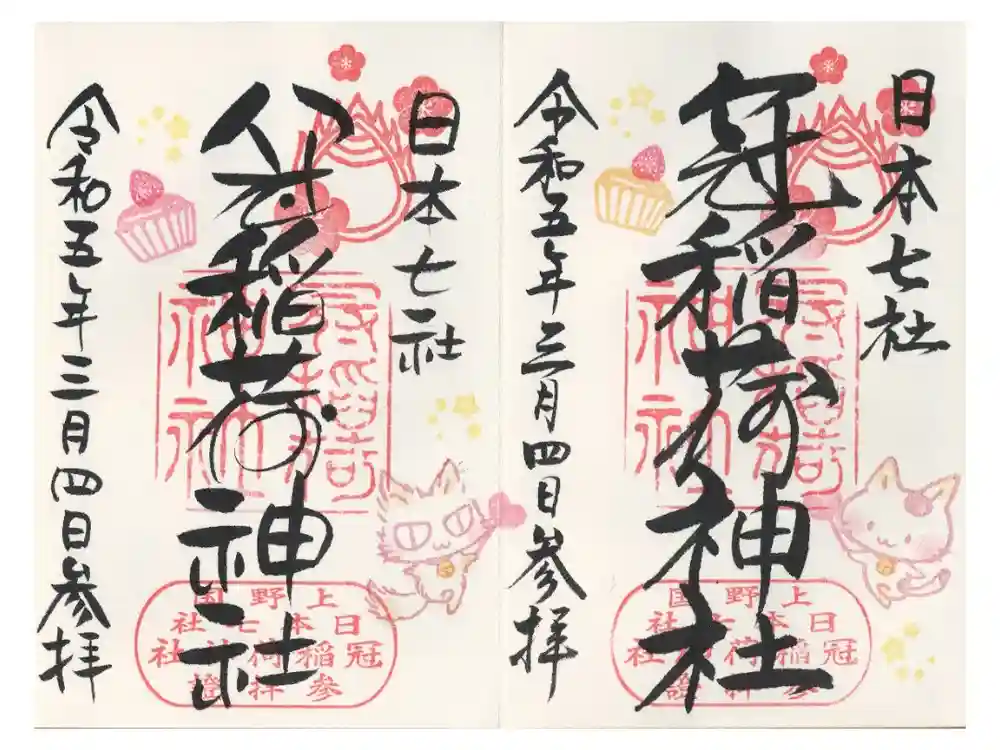 日本七社
冠稲荷神社
令和五年三月四日参拝
上野国
日本七社
冠稲荷神社
参拝證
日本七社
冠稲荷神社
令和五年三月四日参拝
上野国
日本七社
冠稲荷神社
参拝證